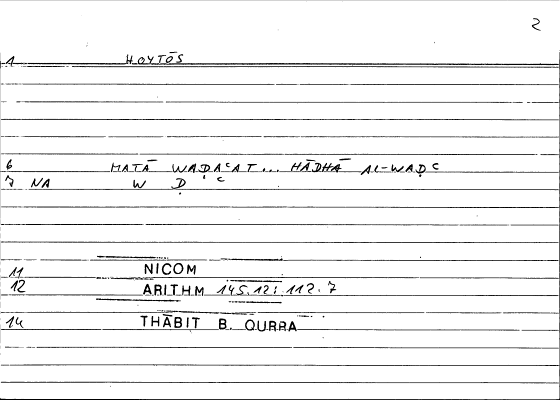 2
1 HOYTŌS
6 MATĀ WAḌAʿAT... HĀDHĀ AL-WAḌʿ
7 NA W Ḍ ʿ
11 NICOM
12 ARITHM 145.12: 112.7
14 THĀBIT B. QURRA